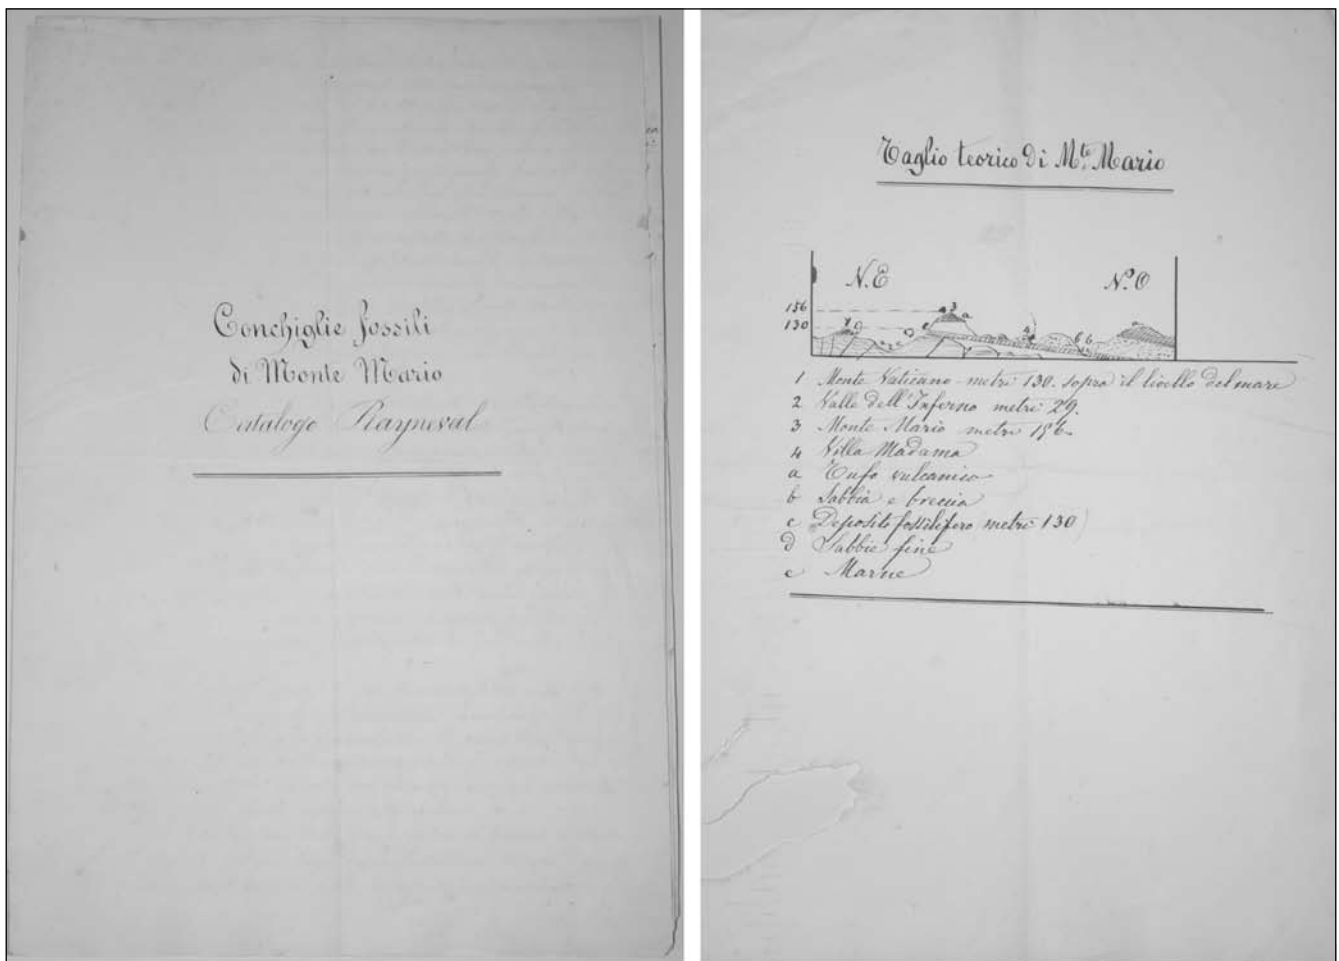 Conchiglie fossili
di Monte Mario
Catalogo Rayneval
Taglio teorico di M.te Mario
N.E
N.O
156
130
3
a
1
1 Monte Vaticano metri 130. sopra il livello del mare
2 Valle dell'Inferno metri 29.
3 Monte Mario metri 156.
4 Villa Madama
a Tufo vulcanico
b Sabbia e breccia
c Deposito fossilifero (metri 130)
d Sabbie fine
e Marne